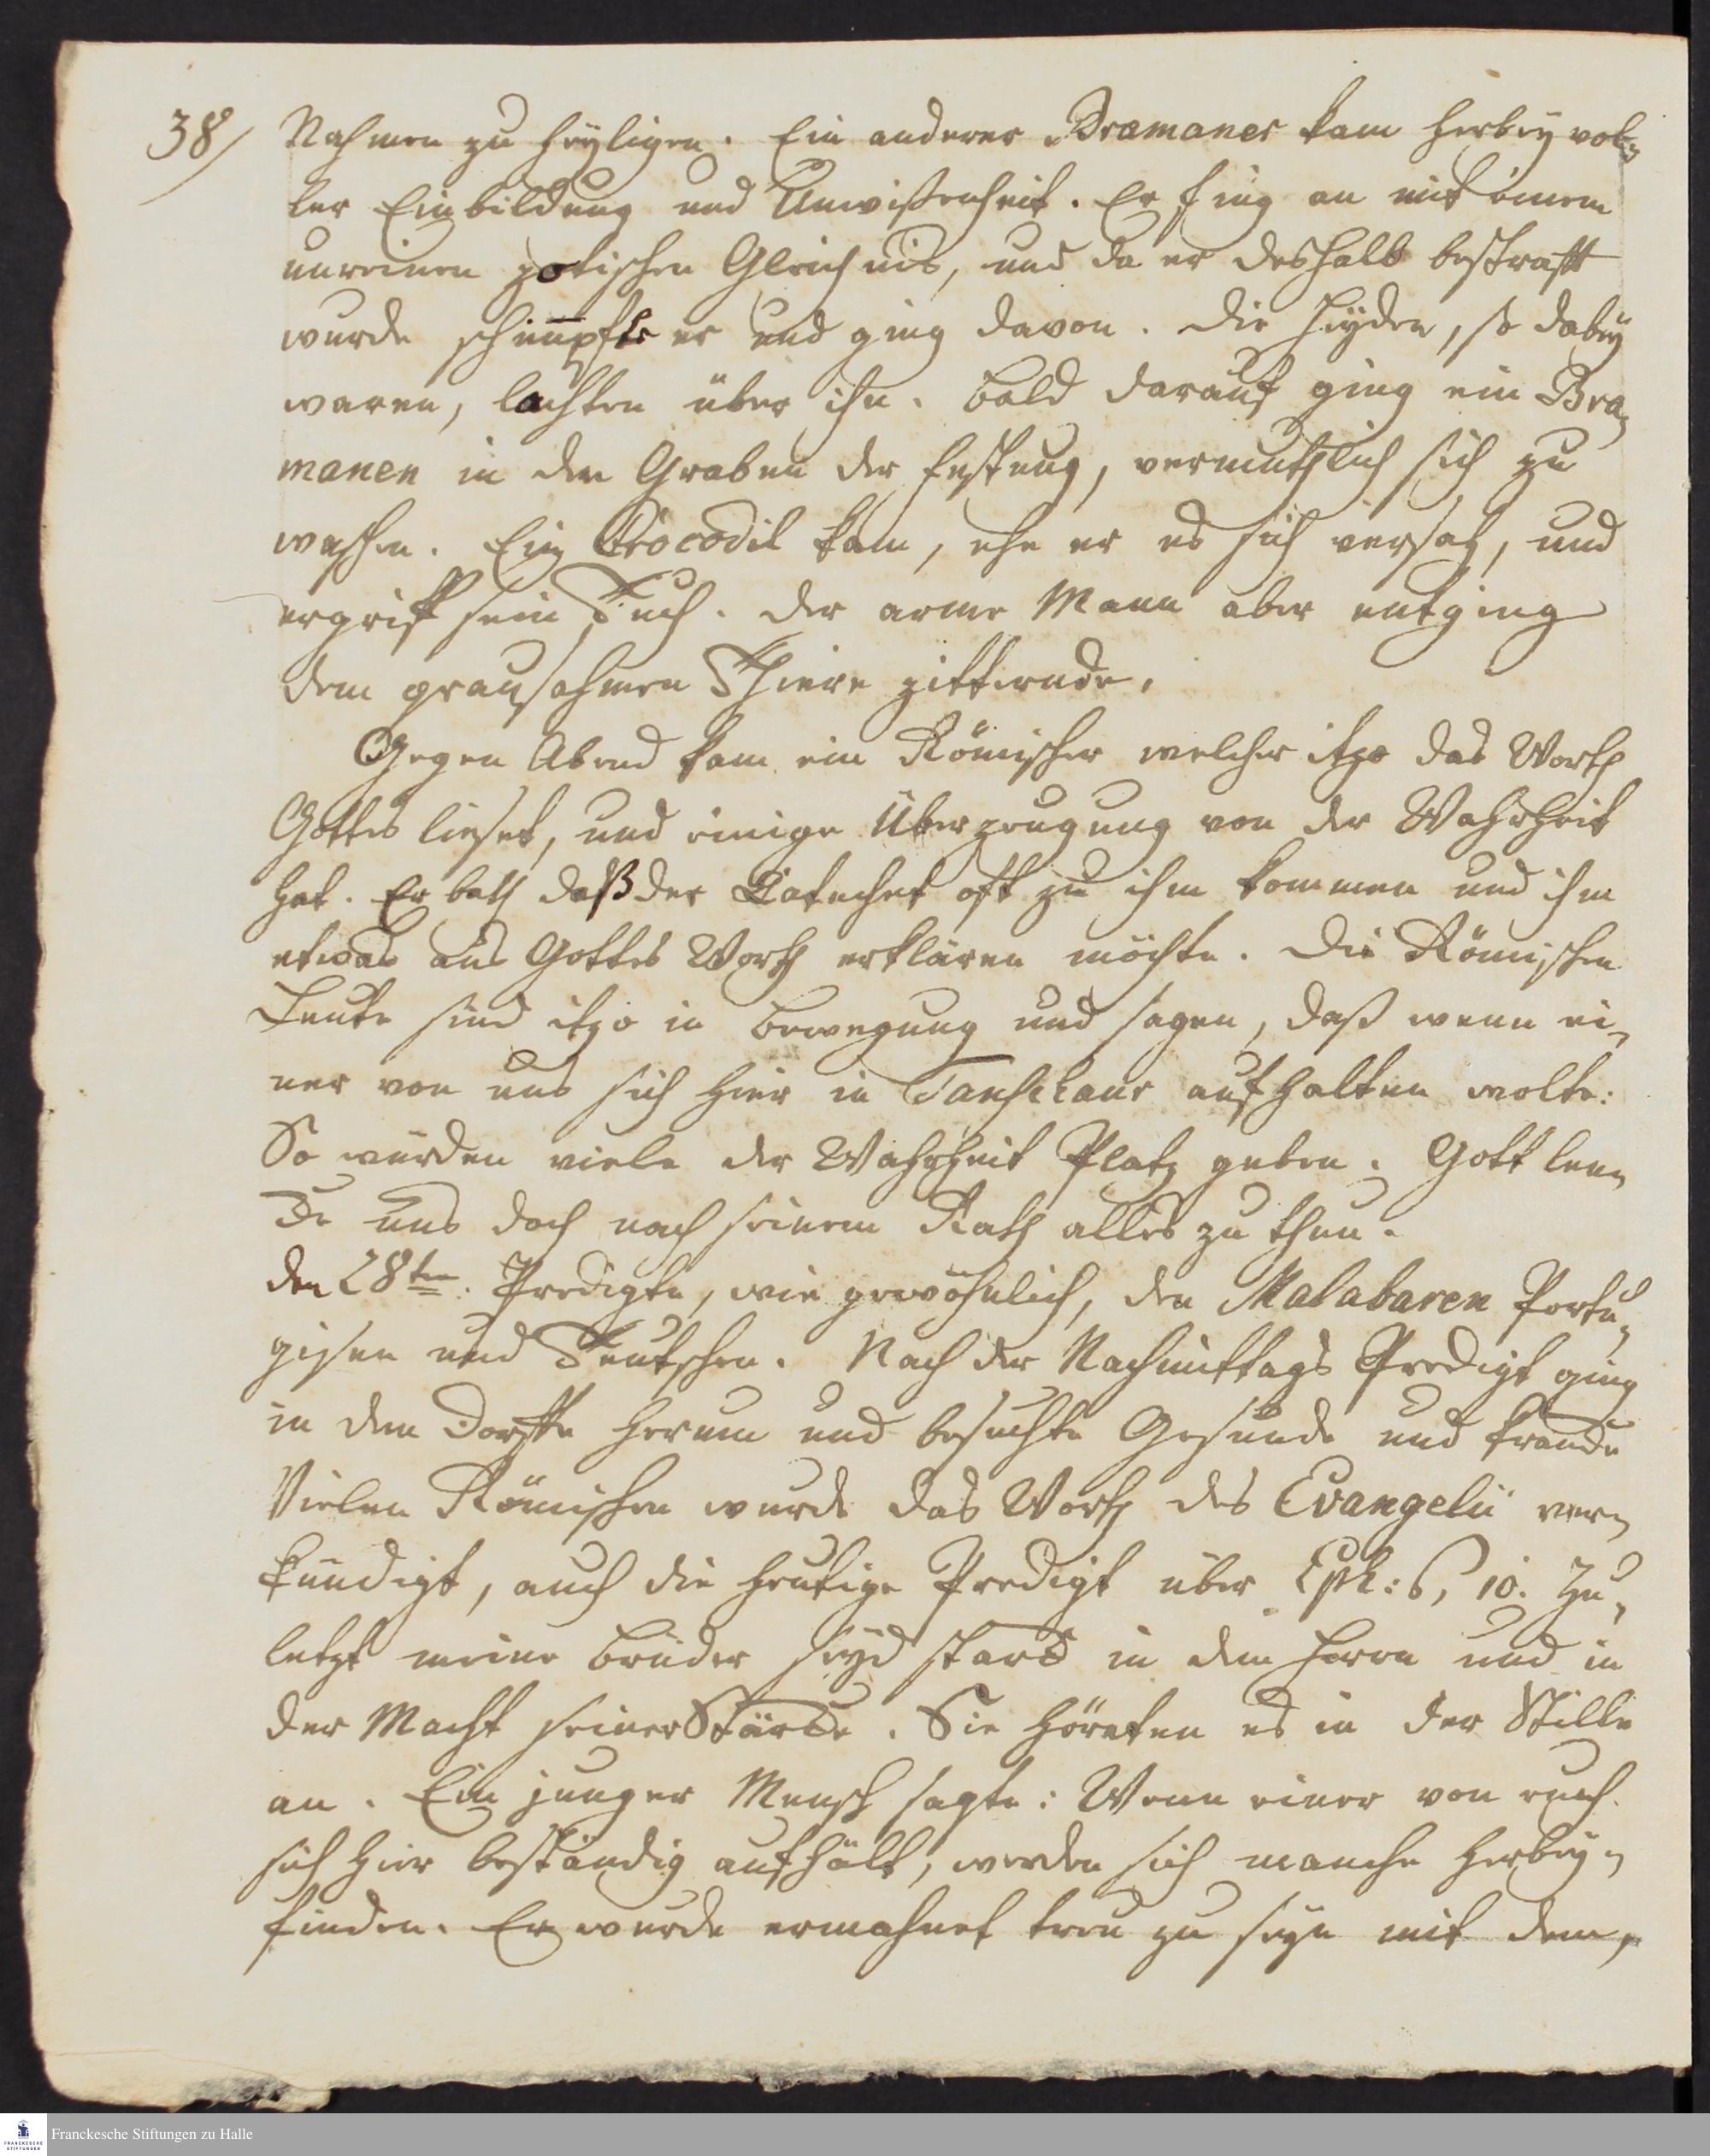 38/
Nahmen zu heyligen. Ein anderer Bramaner kam herbey vol-
ler Einbildung und Unwißenheit. Er fing an mit einem
unreinen zotischen Gleichnis, und da er deshalb bestrafft
wurde schimpfte er und ging davon. Die Heyden, so dabey
waren, lachten über ihn. Bald darauf ging ein Bra-
manen in den Graben der Festung, vermuthlich sich zu
waschen. Ein Crocodil kam, ehe er es sich versah, und
ergriff sein Tuch. Der arme Mann aber entging
dem grausahmen Thiere zitternde.
Gegen Abend kam ein Römischer welcher itzo das Worth
Gottes lieset, und einige Überzeugung von der Wahrheit
hat. Er bath daß der Catechet oft zu ihm kommen und ihm
etwas aus Gottes Worth erklären möchte. Die Römischen
Leute sind itzo in Bewegung und sagen, daß wenn ei-
ner von uns sich hier in Tanschaur aufhalten wolte:
So würden viele der Wahrheit Platz geben. Gott len-
de uns doch nach seinem Rath alles zu thun.
den 28ten. Predigte, wie gewöhnlich, den Malabaren Portu-
gisen und Teutschen. Nach der Nachmittags Predigt ging
in dem Dorffe herum und besuchte Gesunde und Krancke
Vielen Römischen wurde das Worth des Evangelii ver-
kündigt, auch die heutige Predigt über Eph: 6, 10. Zu-
letzt meine Brüder seyd starck in dem Herrn und in
der Macht seiner Stärcke. Sie höreten es in der Stille
an. Ein junger Mensch sagte: Wenn einer von euch
sich hier beständig aufhält, werden sich manche herbey-
finden. Er wurde ermahnet treu zu seyn mit dem,
Franckesche Stiftungen zu Halle
FRANCKESCHE
STIFTUNGEN